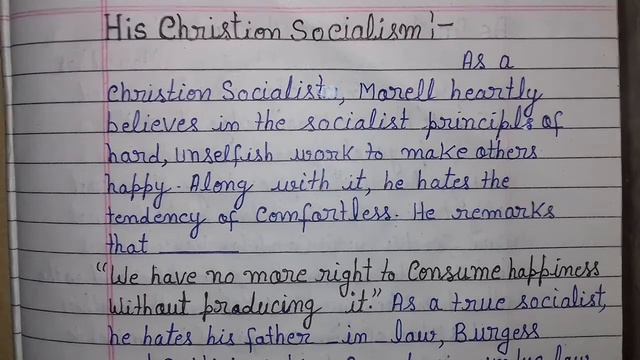 His Christion Socialism :-
As a
Christion Socialist, Morell heartly
believes in the socialist principls of
hard, unselfish work to make others
happy. Along with it, he hates the
tendency of Comfortless. He remarks
that ______
"We have no more right to Consume happiness
Without producing it." As a true socialist,
he hates his father - in law, Burgess